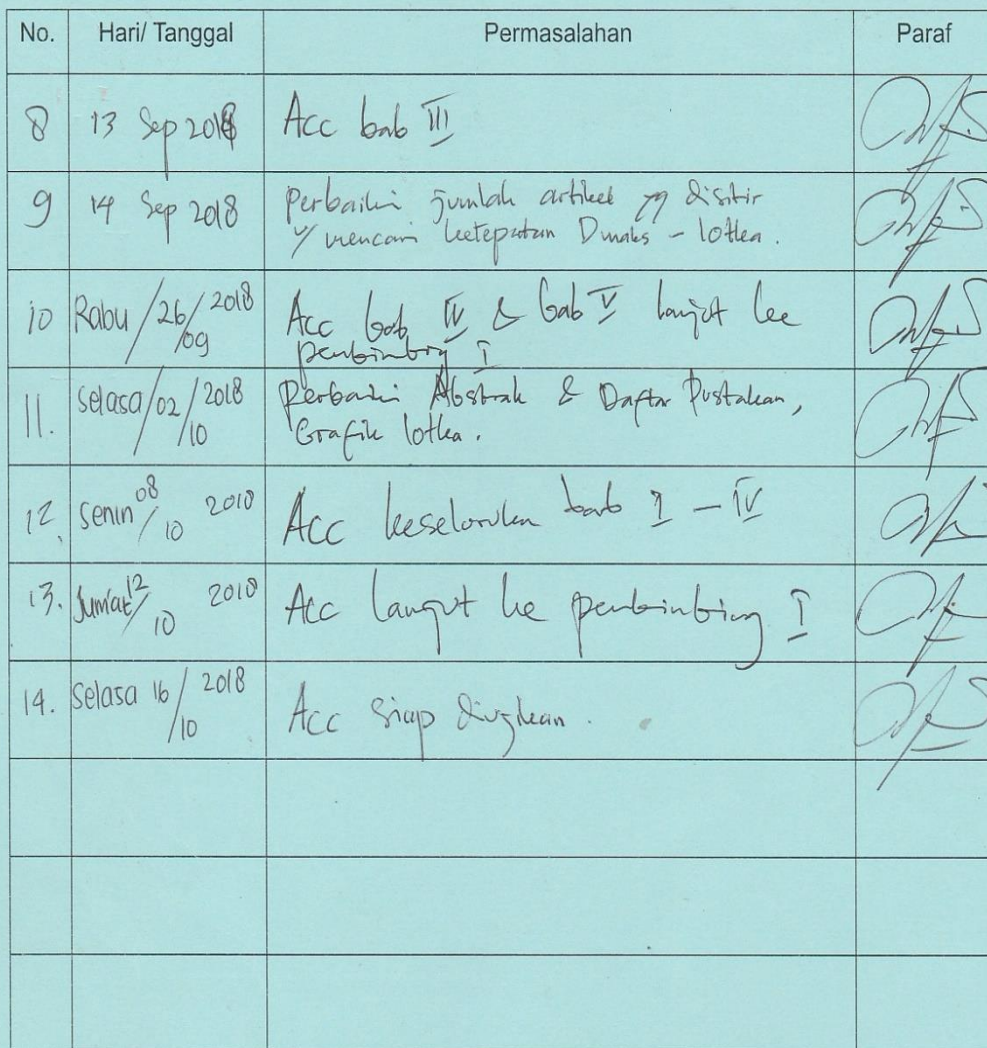 No. Hari/ Tanggal Permasalahan Paraf
8 13 Sep 2018 Acc bab III
9 14 Sep 2018 Perbaiki jumlah artikel yg disitir
u/ mencari ketepatan Dmaks - lotka.
10 Rabu /26/ 2018 Acc bab IV & bab V lanjut ke
09 pembimbing I
11. Selasa/02/ 2018 Perbaiki Abstrak & Daftar Pustakan,
10 Grafik lotka.
12. Senin 08/10 2018 Acc keseluruhan bab I - IV
13. Jumat 12/10 2018 Acc lanjut ke pembimbing I
14. Selasa 16/10 2018 Acc siap diujikan.